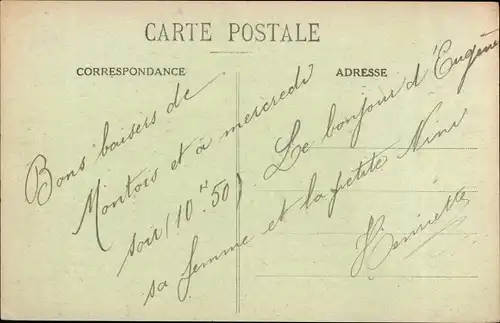 CARTE POSTALE
CORRESPONDANCE
ADRESSE
Bons baisers de
Montois et à mercredi
soir (10 H. 50). Le bonjour d'Eugène
sa femme et la petite Nini
Henriette